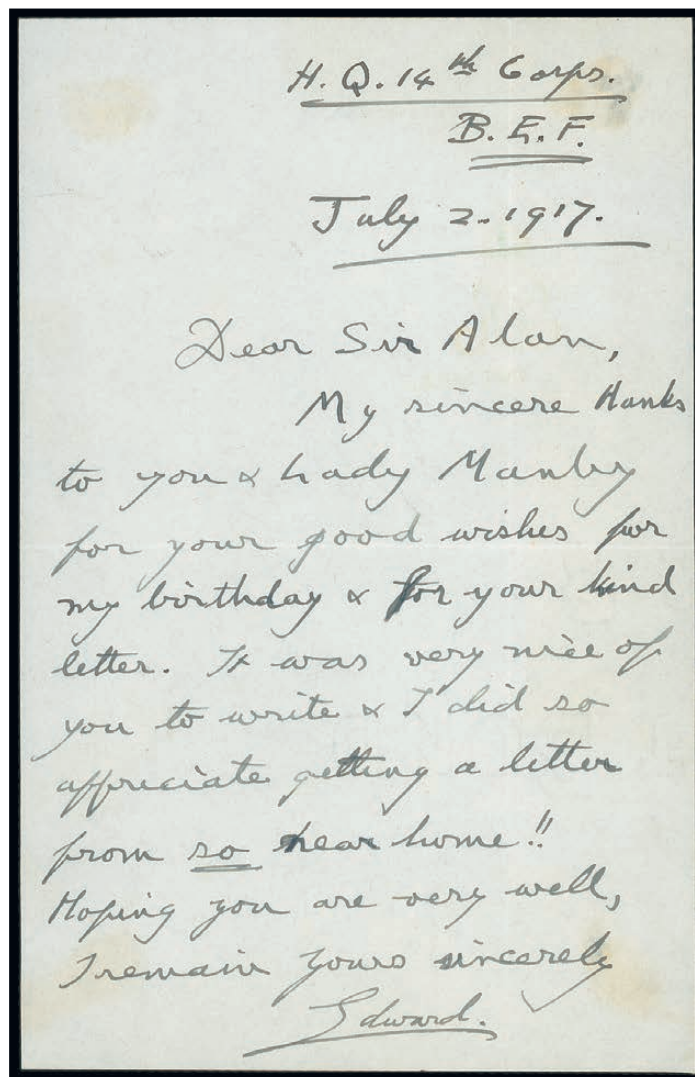 H. Q. 14th Corps.
B. E. F.
July 2. 1917.
Dear Sir Alan,
My sincere thanks
to you & Lady Manby
for your good wishes for
my birthday & for your kind
letter. It was very nice of
you to write & I did so
appreciate getting a letter
from so near home!!
Hoping you are very well,
I remain yours sincerely
Edward.